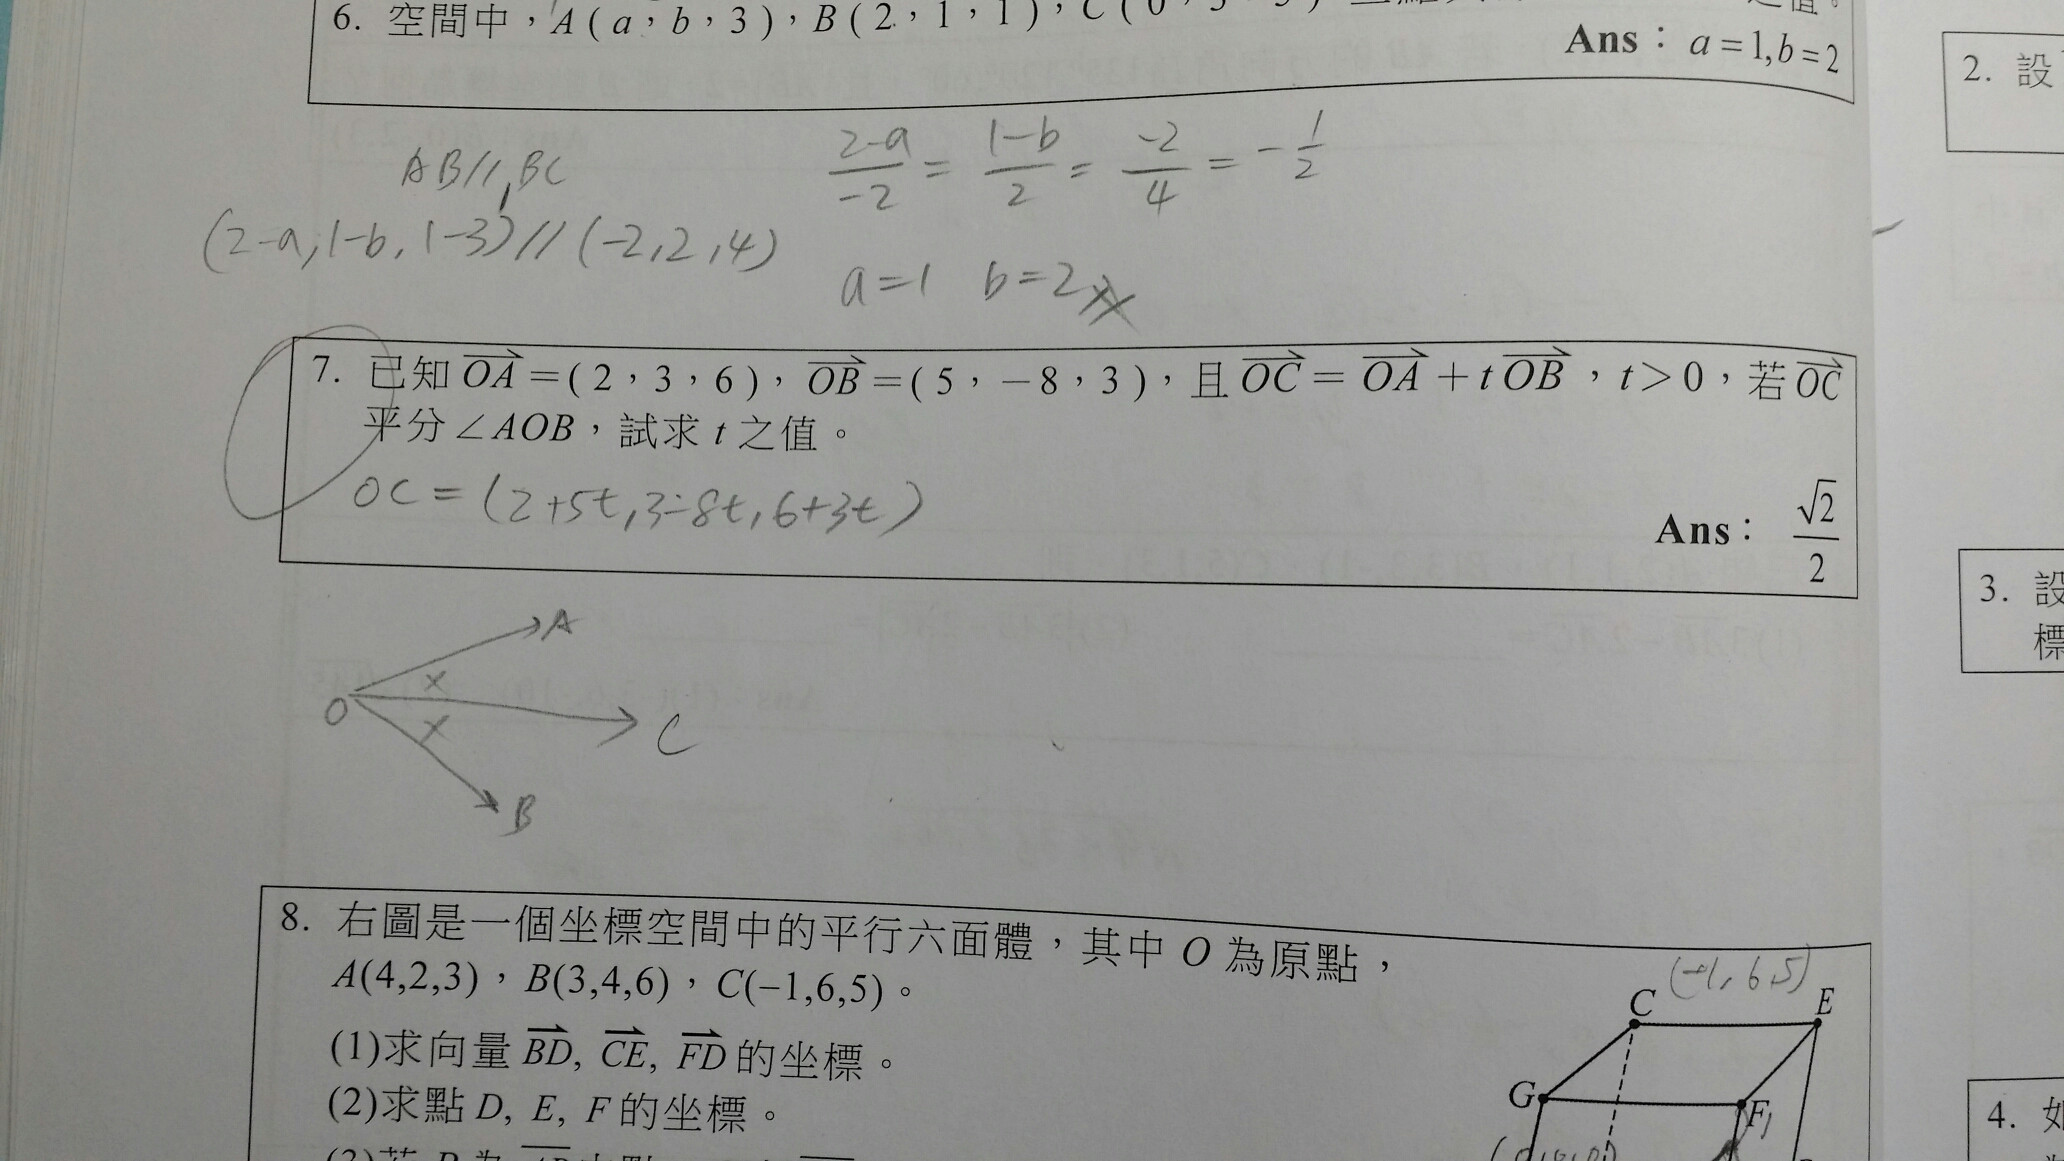 6. 空間中，A(a，b，3)，B(2，1，1)，C(0
Ans：a=1,b=2
AB//BC
(2-a,1-b,1-3)//(-2,2,4)
2-a/-2 = 1-b/2 = -2/4 = -1/2
a=1 b=2
7. 已知 OA=(2，3，6)，OB=(5，-8，3)，且 OC=OA+tOB，t>0，若 OC
平分∠AOB，試求 t 之值。
OC=(2+5t,3-8t,6+3t)
Ans： √2/2
A
O
C
B
8. 右圖是一個坐標空間中的平行六面體，其中 O 為原點，
A(4,2,3)，B(3,4,6)，C(–1,6,5)。
(1)求向量 BD, CE, FD 的坐標。
(2)求點 D, E, F 的坐標。
(-1,6,5)
C
E
G
F
2. 設
3. 設
標
4. 如